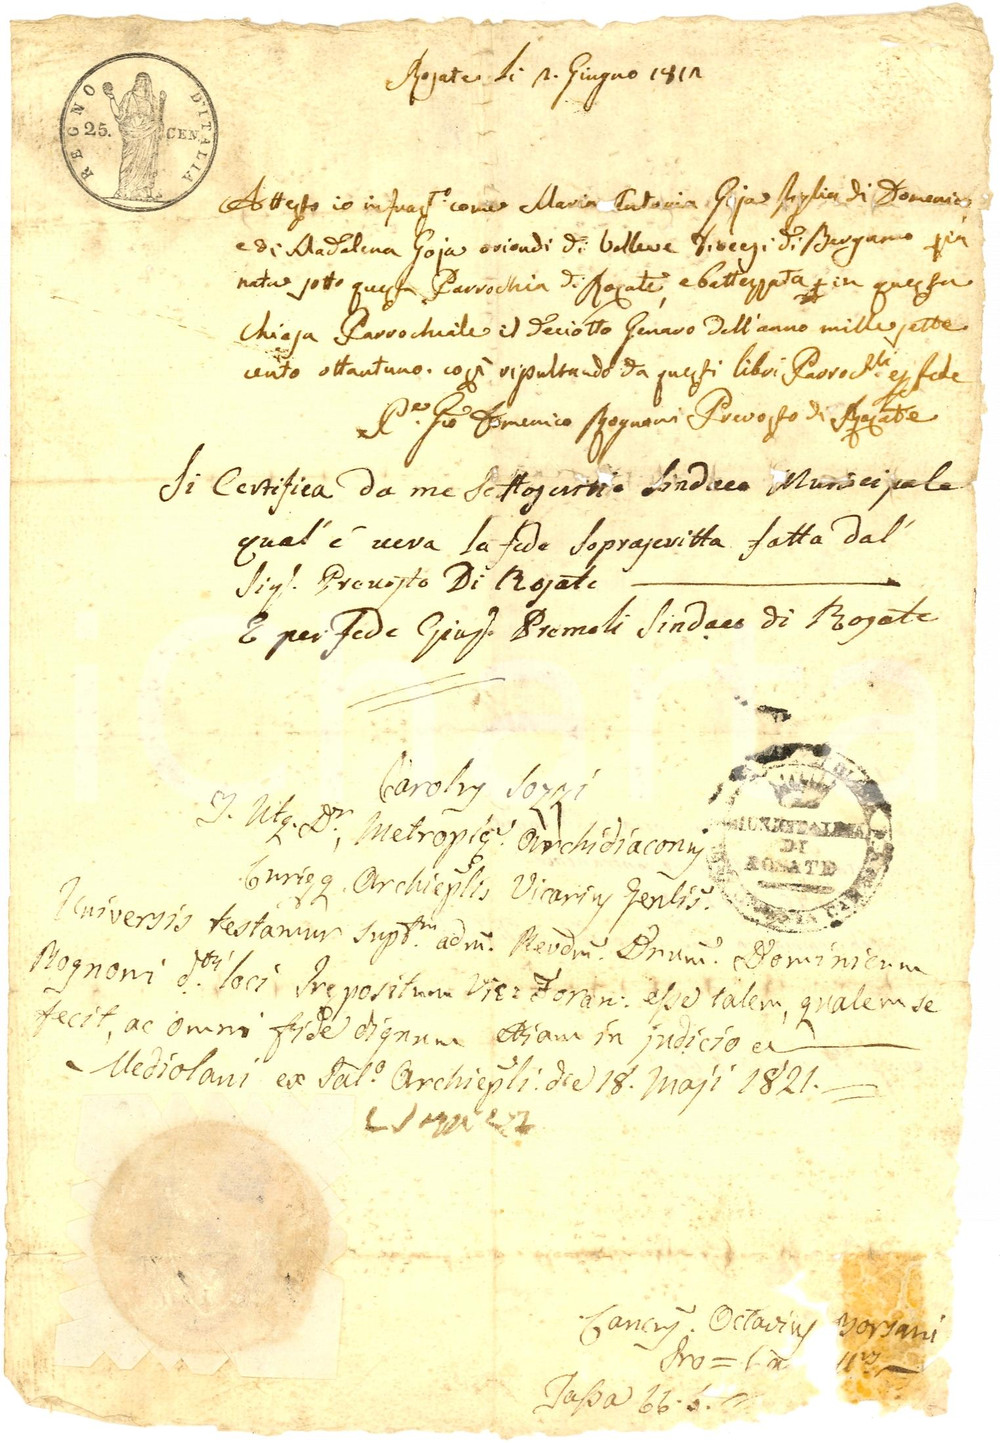 Rosate li 2. Giugno 1812
REGNO D'ITALIA
25. CEN.
Attesto io infrast.º come Maria Antonia Goja figlia di Domenico
e di Madalena Goja oriondi di Valleve Diocesi di Bergamo sia
nata sotto questa Parrochia di Rosate, e battezzata in questa
Chiesa Parrochiale il deciotto Genaro dell'anno mille sette
cento ottantuno. così risultando da questi libri Parroch.li e p fede
P.e Gio Domenico Rognoni Prevosto di Rosate
Si Certifica da me Sottoscritto Sindaco Municipale
qual' è vera la fede Soprascritta fatta dal'
Sig.r Prevosto Di Rosate
E per fede Gius.e Premoli Sindaco di Rosate
Carolus Sozzi
J. Utq. Dr., Metropiq. Archidiaconus
Curiæq. Archieplis Vicarius Genlis.
MUNICIPALITA
DI
ROSATE
Universis testamur supt.m adm. Revdm. Dnum. Dominicum
Rognoni d.ti loci Præpositum Vic: Foran: esse talem, qualem se
fecit, ac omni fide dignum etiam in judicio
Mediolani ex Pal.º Archiepli. die 18. Maji 1821.
Cancus. Octavius Borsani
Pro =
Tassa